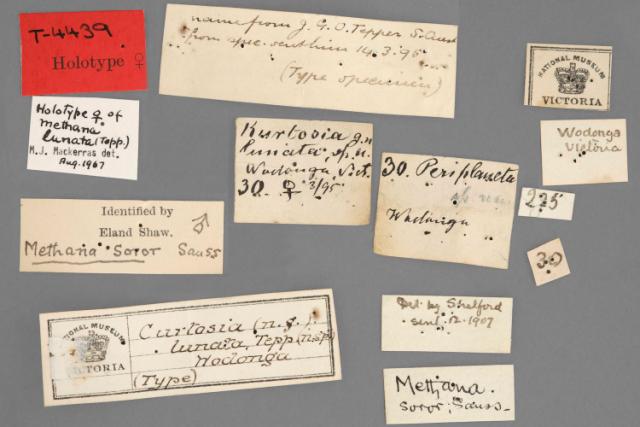 T-4439
Holotype ♀
name from J. G. O. Tepper S. Aust
from spec. sent him 14.3.95
(Type specimen)
NATIONAL MUSEUM
VICTORIA
Holotype ♀ of
methana
lunata (Tepp.)
M. J. Mackerras det.
Aug. 1967
Kurtosia g.n.
lunata, sp. n.
Wodonga Vict.
30. ♀ 3/95
30. Periplaneta
Wodonga
Wodonga
Victoria
225
30
Identified by
Eland Shaw.
♂
Methana Soror Sauss
NATIONAL MUSEUM
VICTORIA
Curtosia (n.g.)
lunata, Tepp (n.sp)
Wodonga
(Type)
Det by Shelford
sent. 12. 1907
Methana.
soror, Sauss-